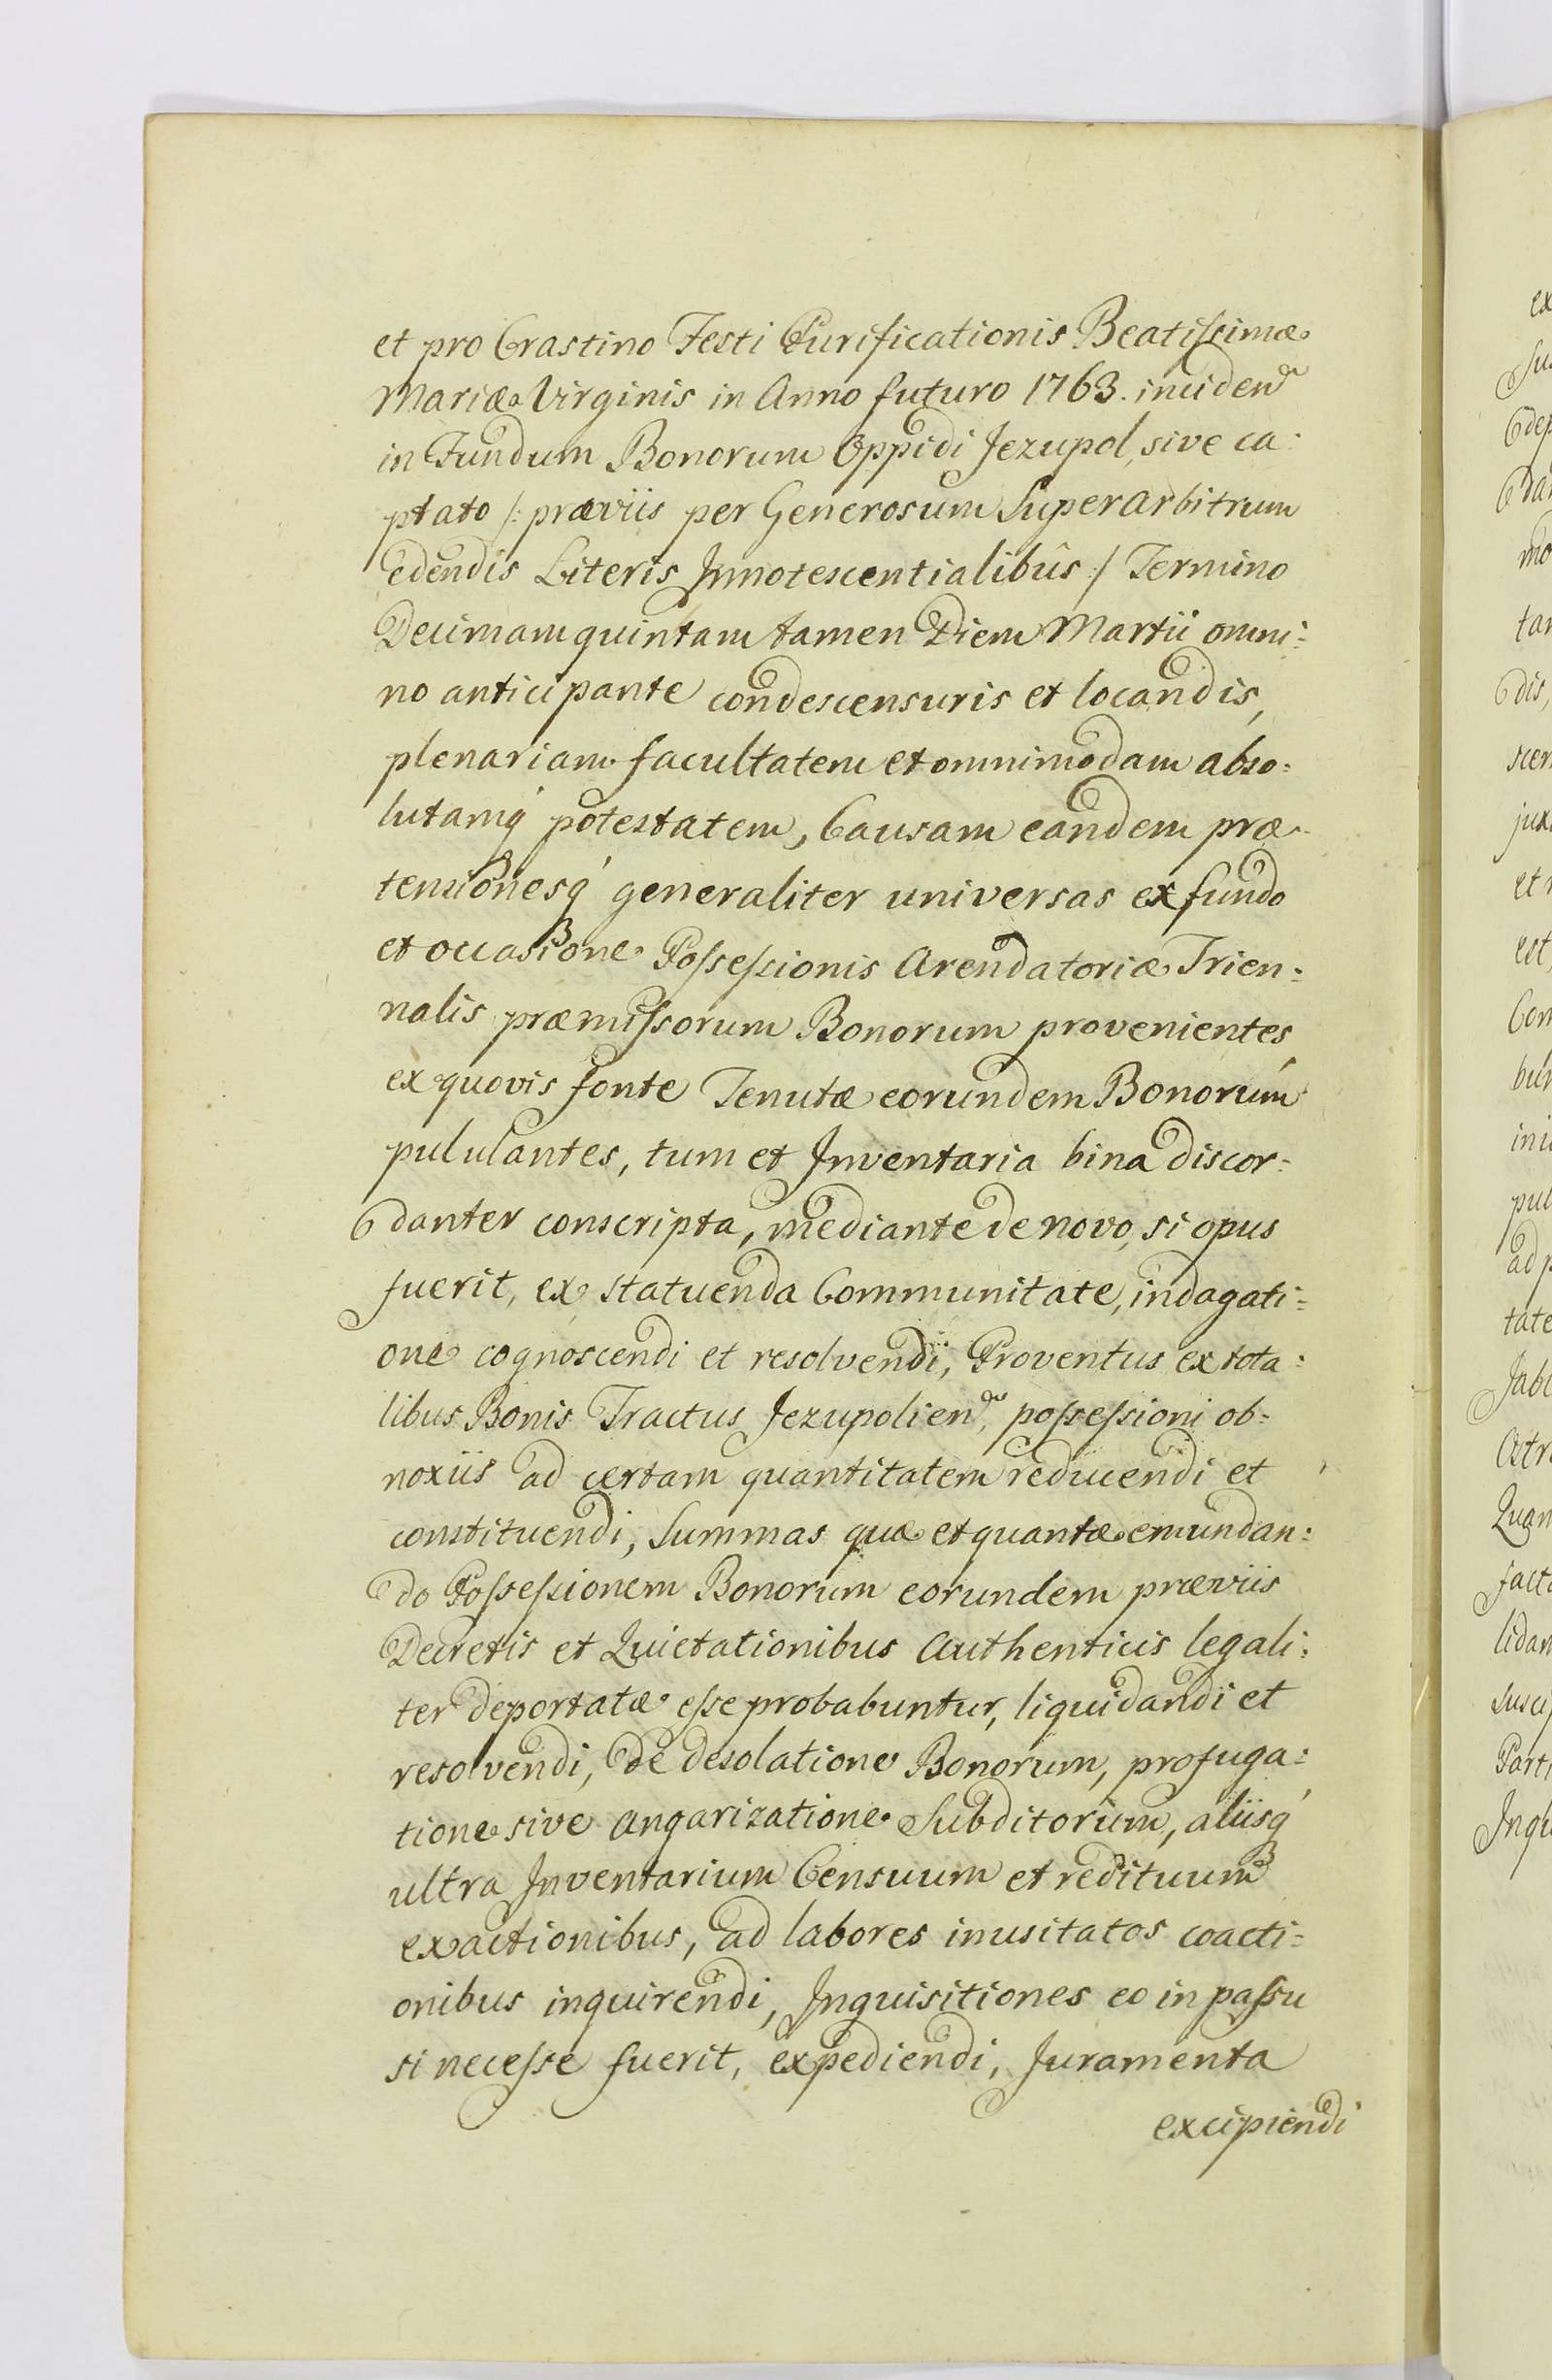 et pro Crastino Festi Purificationis Beatiſsimæ
Mariæ Virginis in Anno futuro 1763. inciden
in Fundum Bonorum Oppidi Jezupol, sive ca:
ptato /: præviis per Generosum Superarbitrum
edendis Literis Innotescentialibûs :/ Termino
Decimamquintam tamen Diem Martii omni:
no anticipante condescensuris et locandis,
plenariam facultatem et omnimodam abso:
lutamq́ potestatem, Causam eandem præ:
tensionesq́ generaliter universas ex fundo
et occasione Poſseſsionis Arendatoriæ Trien:
nalis præmiſsorum Bonorum provenientes,
ex quovis fonte Tenutæ eorundem Bonorum
pululantes, tum et Inventaria bina discor:
danter conscripta, mediante de novo, si opus
fuerit, ex statuenda Communitate, indagati:
one cognoscendi et resolvendi, Proventus ex tota:
libus Bonis Tractus Jezupolien, poſseſsioni ob:
noxiis ad certam quantitatem reducendi et
constituendi, Summas quæ et quantæ emundan:
do Poſseſsionem Bonorum eorundem præviis
Decretis et Quietationibus Authenticis legali:
ter deportatæ eſse probabuntur, liquidandi et
resolvendi, de desolatione Bonorum, profuga:
tione sive angarizatione Subditorum, aliisq́
ultra Inventarium Censuum et redituum
exactionibus, ad labores inusitatos coacti:
onibus inquirendi, Inquisitiones eo in paſsu
si neceſse fuerit, expediendi, Juramenta
excipiendi